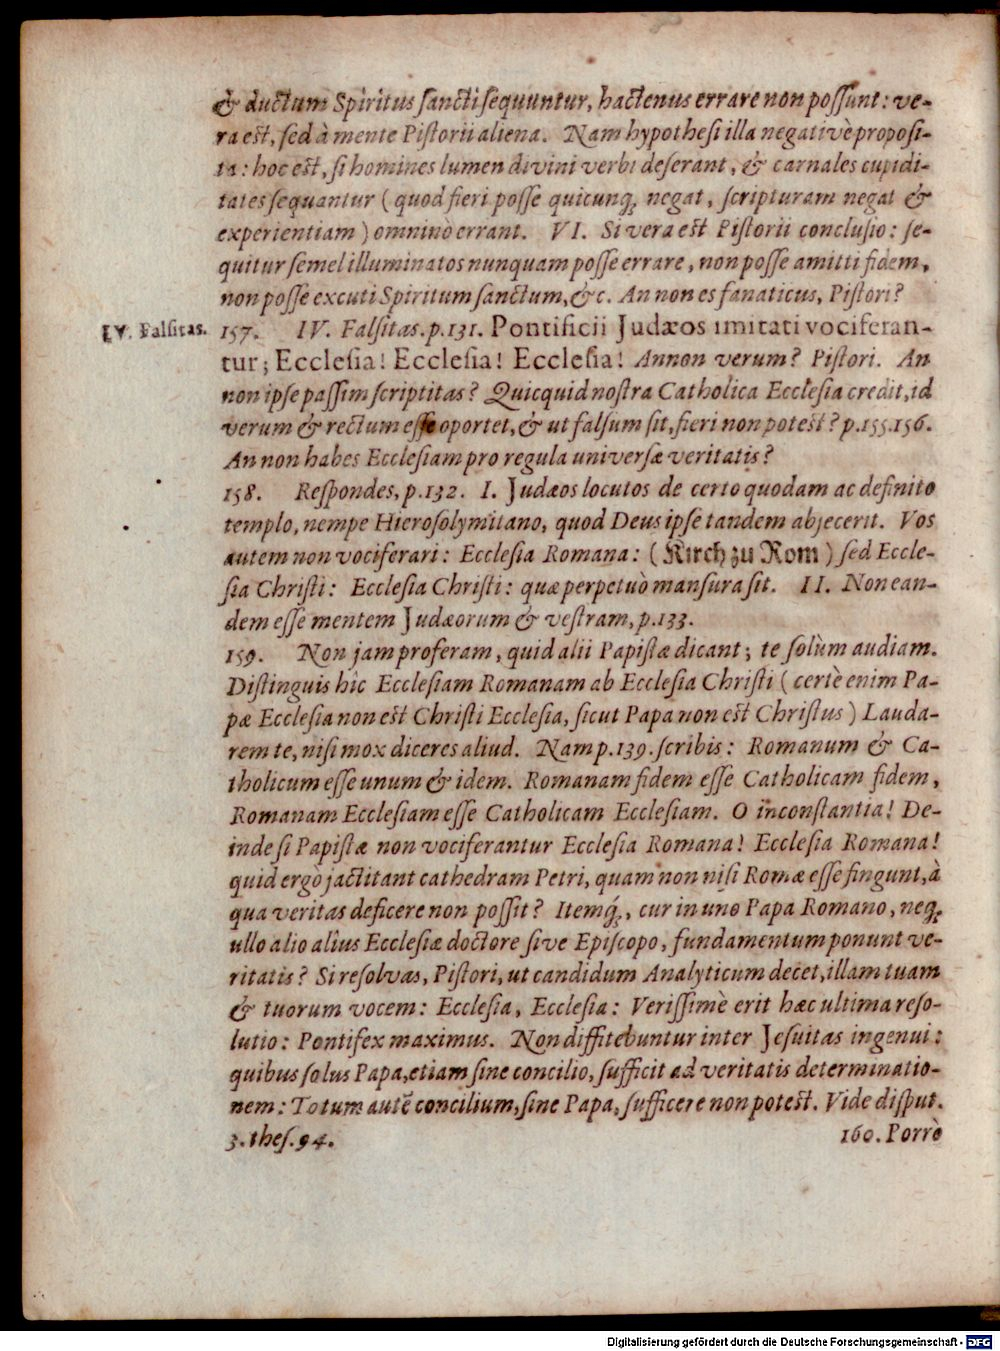 & ductum Spiritus sancti sequuntur, hactenus errare non possunt: ve-
ra est, sed à mente Pistorii aliena. Nam hypothesi illa negativè proposi-
ta: hoc est, si homines lumen divini verbi deserant, & carnales cupidi-
tates sequantur (quod fieri posse quicunq; negat, scripturam negat &
experientiam) omninò errant. VI. Si vera est Pistorii conclusio: se-
quitur semel illuminatos nunquam posse errare, non posse amitti fidem,
non posse excuti Spiritum sanctum, &c. An non es fanaticus, Pistori?
IV. Falsitas. 157. IV. Falsitas. p.131. Pontificii Judæos imitati vociferan-
tur; Ecclesia! Ecclesia! Ecclesia! Annon verum? Pistori. An
non ipse passim scriptitas? Quicquid nostra Catholica Ecclesia credit, id
verum & rectum esse oportet, & ut falsum sit, fieri non potest? p.155.156.
An non habes Ecclesiam pro regula universæ veritatis?
158. Respondes, p.132. I. Judæos locutos de certo quodam ac definito
templo, nempe Hierosolymitano, quod Deus ipse tandem abjecerit. Vos
autem non vociferari: Ecclesia Romana: (Kirch zu Rom) sed Eccle-
sia Christi: Ecclesia Christi: quæ perpetuò mansura sit. II. Non ean-
dem esse mentem Judæorum & vestram, p.133.
159. Non jam proferam, quid alii Papistæ dicant; te solùm audiam.
Distinguis hîc Ecclesiam Romanam ab Ecclesia Christi (certè enim Pa-
pæ Ecclesia non est Christi Ecclesia, sicut Papa non est Christus) Lauda-
rem te, nisi mox diceres aliud. Nam p.139. scribis: Romanum & Ca-
tholicum esse unum & idem. Romanam fidem esse Catholicam fidem,
Romanam Ecclesiam esse Catholicam Ecclesiam. O inconstantia! De-
inde si Papistæ non vociferantur Ecclesia Romana! Ecclesia Romana!
quid ergò jactitant cathedram Petri, quam non nisi Romæ esse fingunt, à
qua veritas deficere non possit? Itemq́;, cur in uno Papa Romano, neq;
ullo alio alîus Ecclesiæ doctore sive Episcopo, fundamentum ponunt ve-
ritatis? Si resolvas, Pistori, ut candidum Analyticum decet, illam tuam
& tuorum vocem: Ecclesia, Ecclesia: Verissimè erit hæc ultima reso-
lutio: Pontifex maximus. Non diffitebuntur inter Jesuitas ingenui:
quibus solus Papa, etiam sine concilio, sufficit ad veritatis determinatio-
nem: Totum autē concilium, sine Papa, sufficere non potest. Vide disput.
3. thes. 94. 160. Porrò
Digitalisierung gefördert durch die Deutsche Forschungsgemeinschaft - DFG